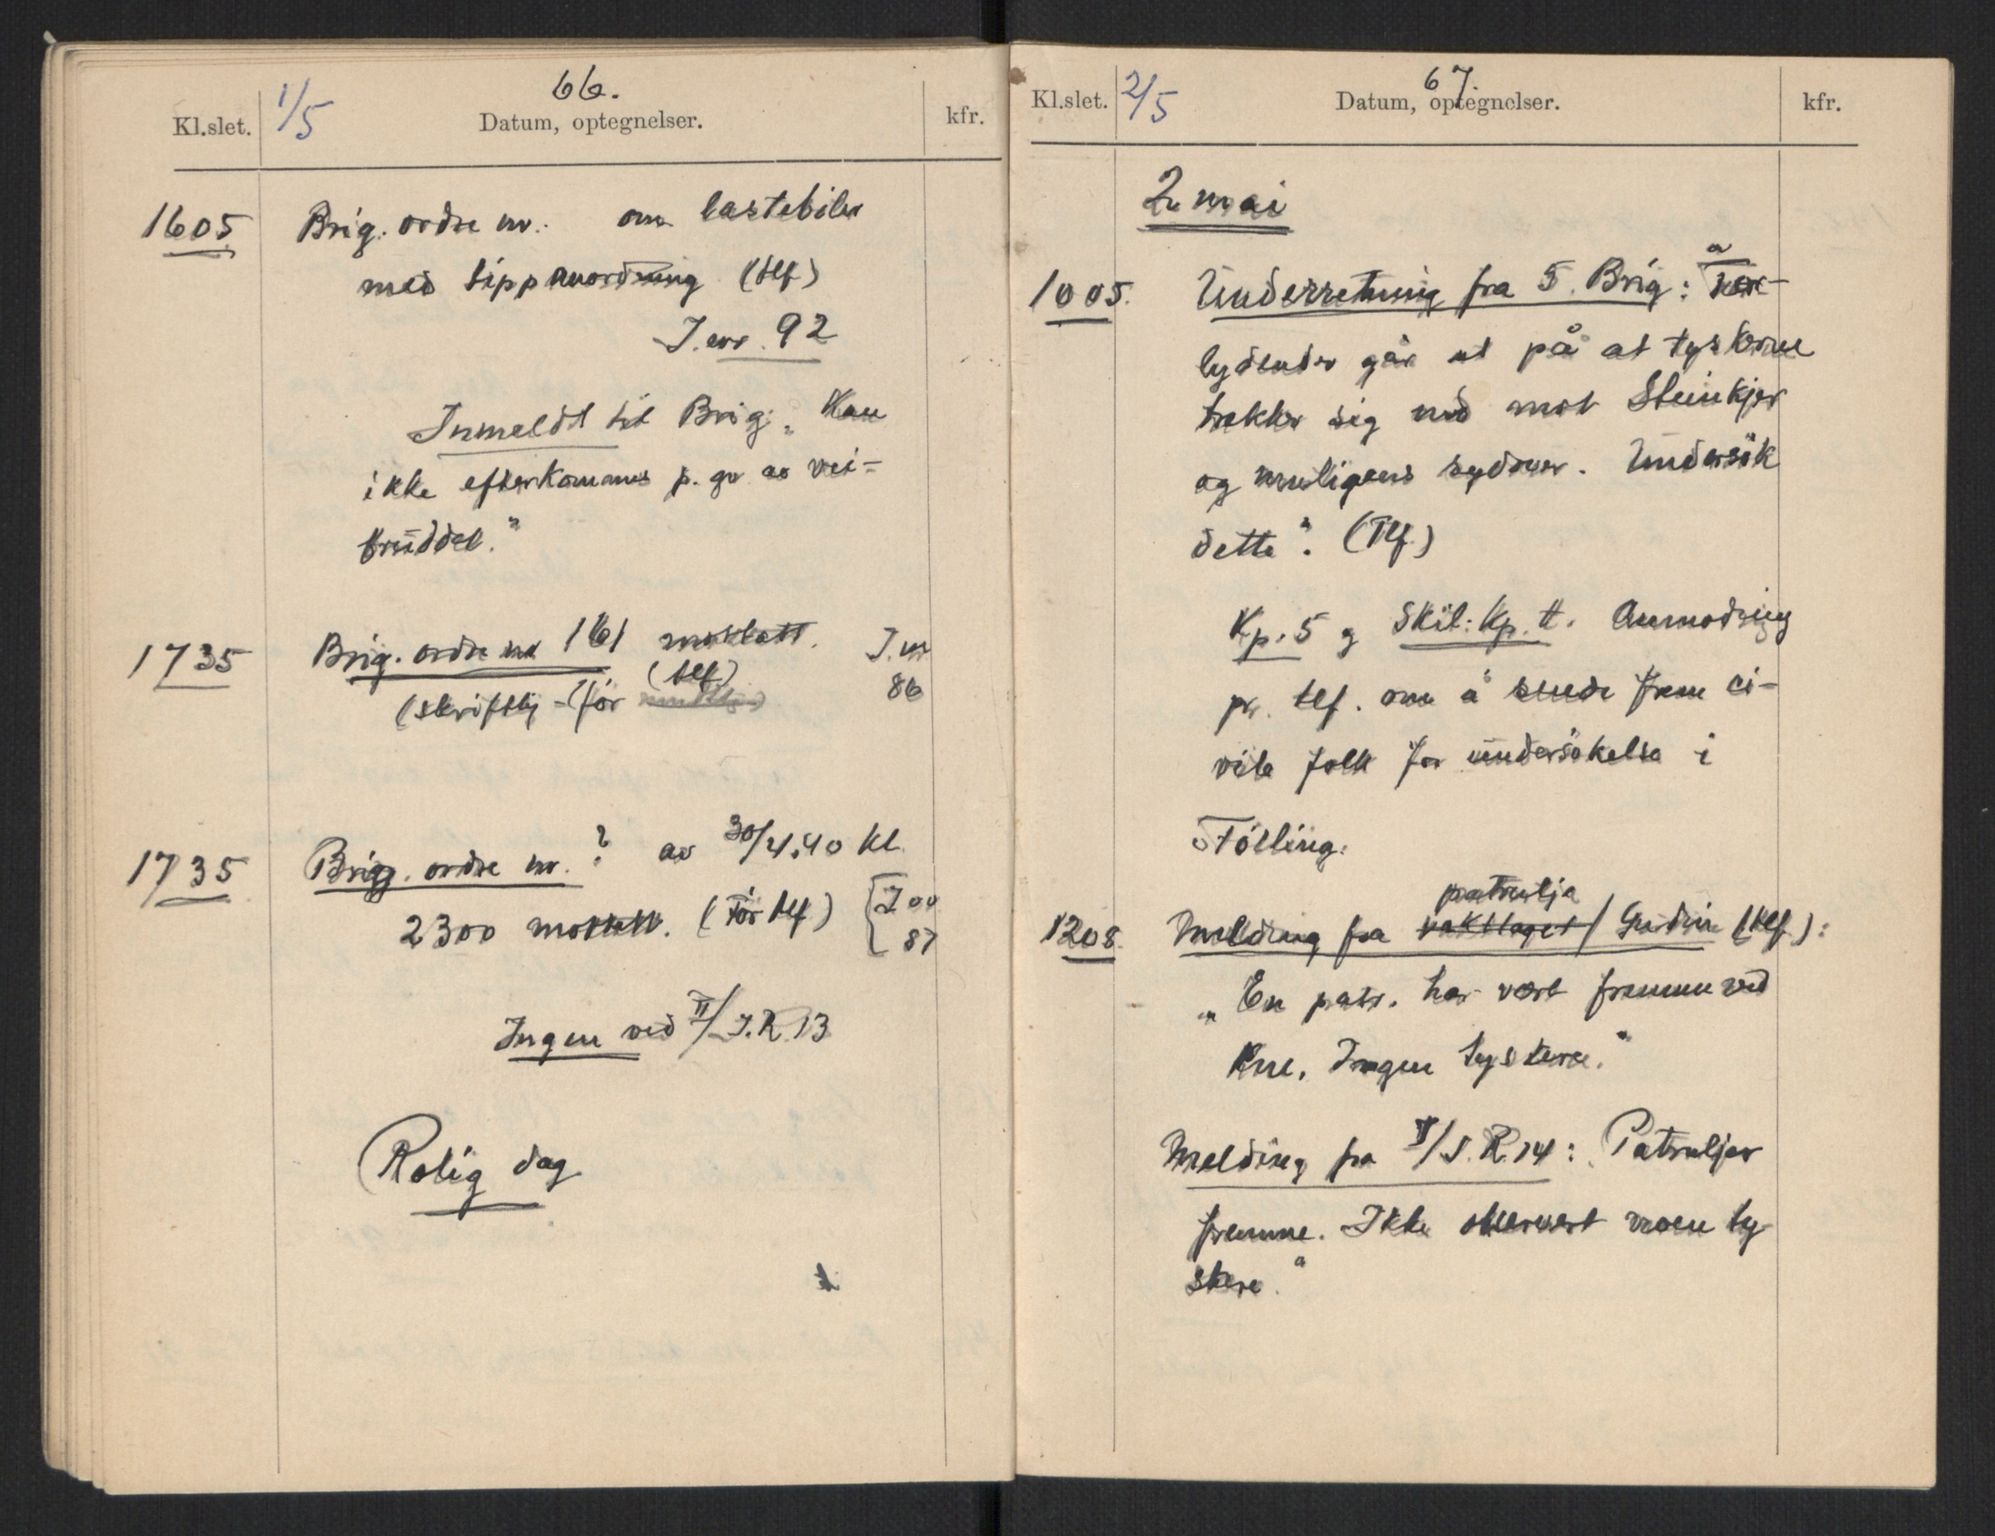 66.
Kl.slet. 1/5 Datum, optegnelser. kfr.
1605 Brig. ordre nr. om lastebiler
med tippanordning (tlf)
J. nr. 92
Innmeldt til Brig: „Kan
ikke efterkommes p. gr av vei-
bruddet."
1735 Brig. ordre nr 161 mottatt. J. nr
(skriftlig - før (tlf) 86
1735 Brig. ordre nr. ? av 30/4.40 kl.
2300 mottatt. (Før tlf) J 00
87
Ingen ved II/I.R.13
Rolig dag
67.
Kl.slet. 2/5 Datum, optegnelser. kfr.
2 mai
1005. Underretning fra 5. Brig: „For-
lydender går ut på at tyskerne
trekker sig ned mot Steinkjer
og muligens sydover. Undersök
dette". (Tlf.)
Kp. 5 g Skil. Kp. tt. Anmodning
pr. tlf. om å sende frem ci-
vile folk for undersökelse i
Följling.
patrulje
1208. Melding fra vaktlaget / Gudin (tlf.):
„En patr. har vært fremme ved
Kne. Ingen tyskere."
Melding fra II/I.R.14: „Patruljer
fremme. Ikke observert noen ty-
skere."